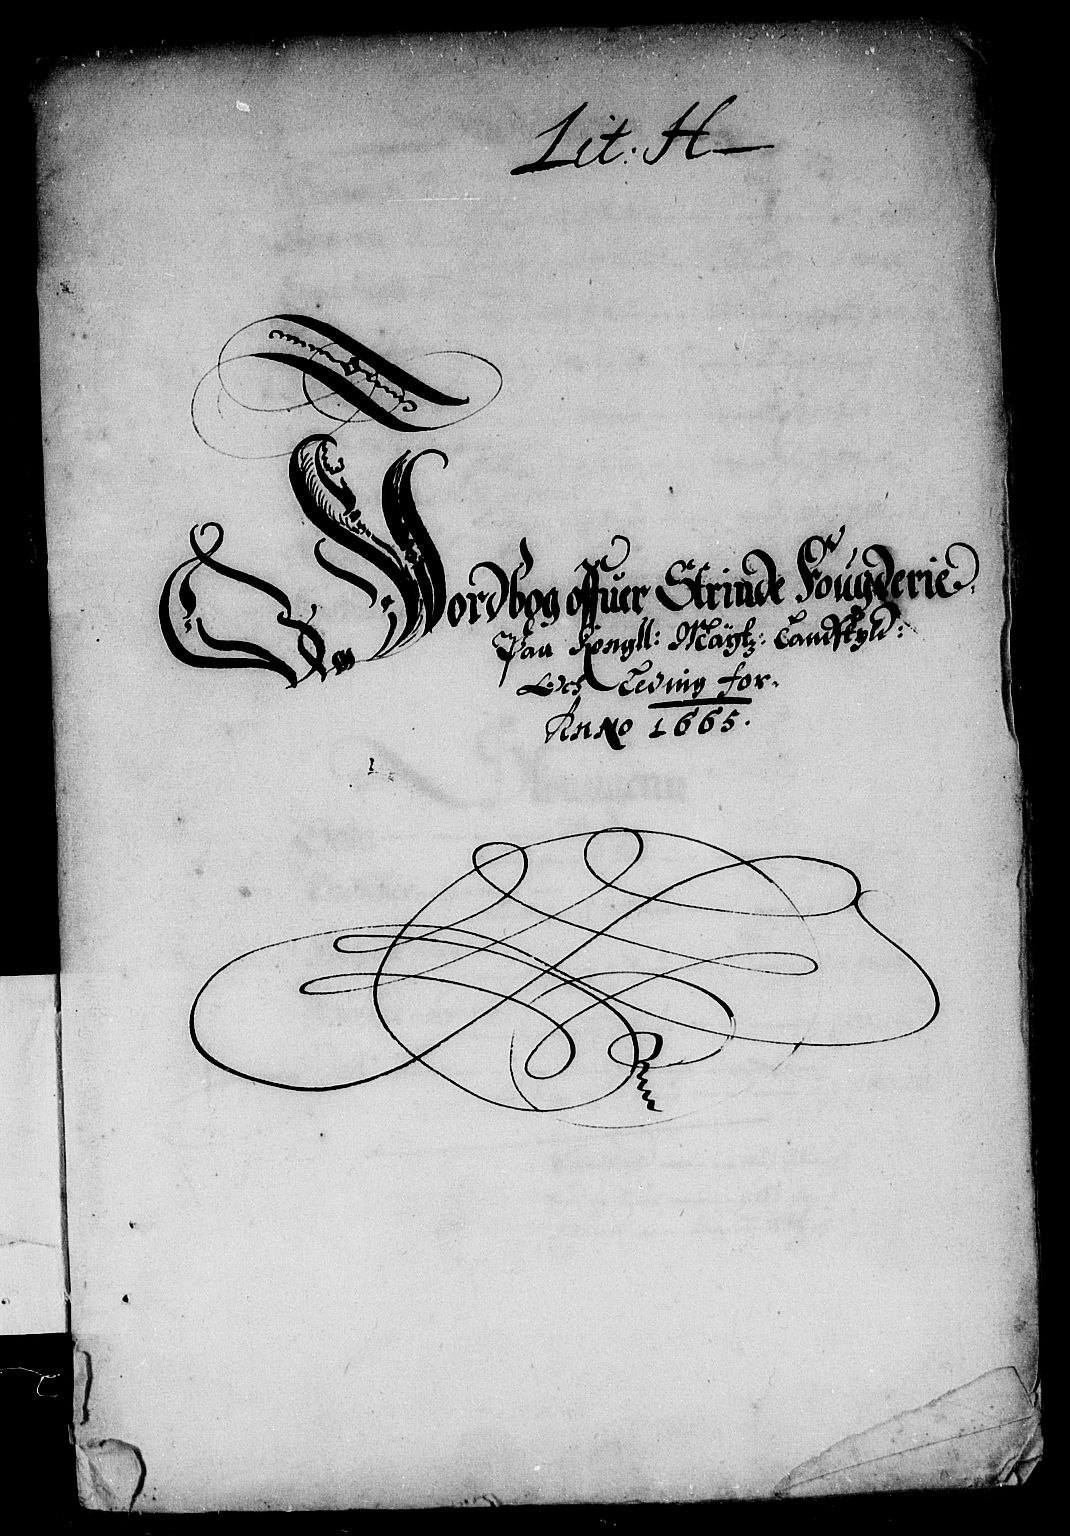 Lit: H
Jordbog offuer Strinde Fougderie
Paa Kongll: Maÿtz: Landskyld:
och Leding for
Anno 1665.